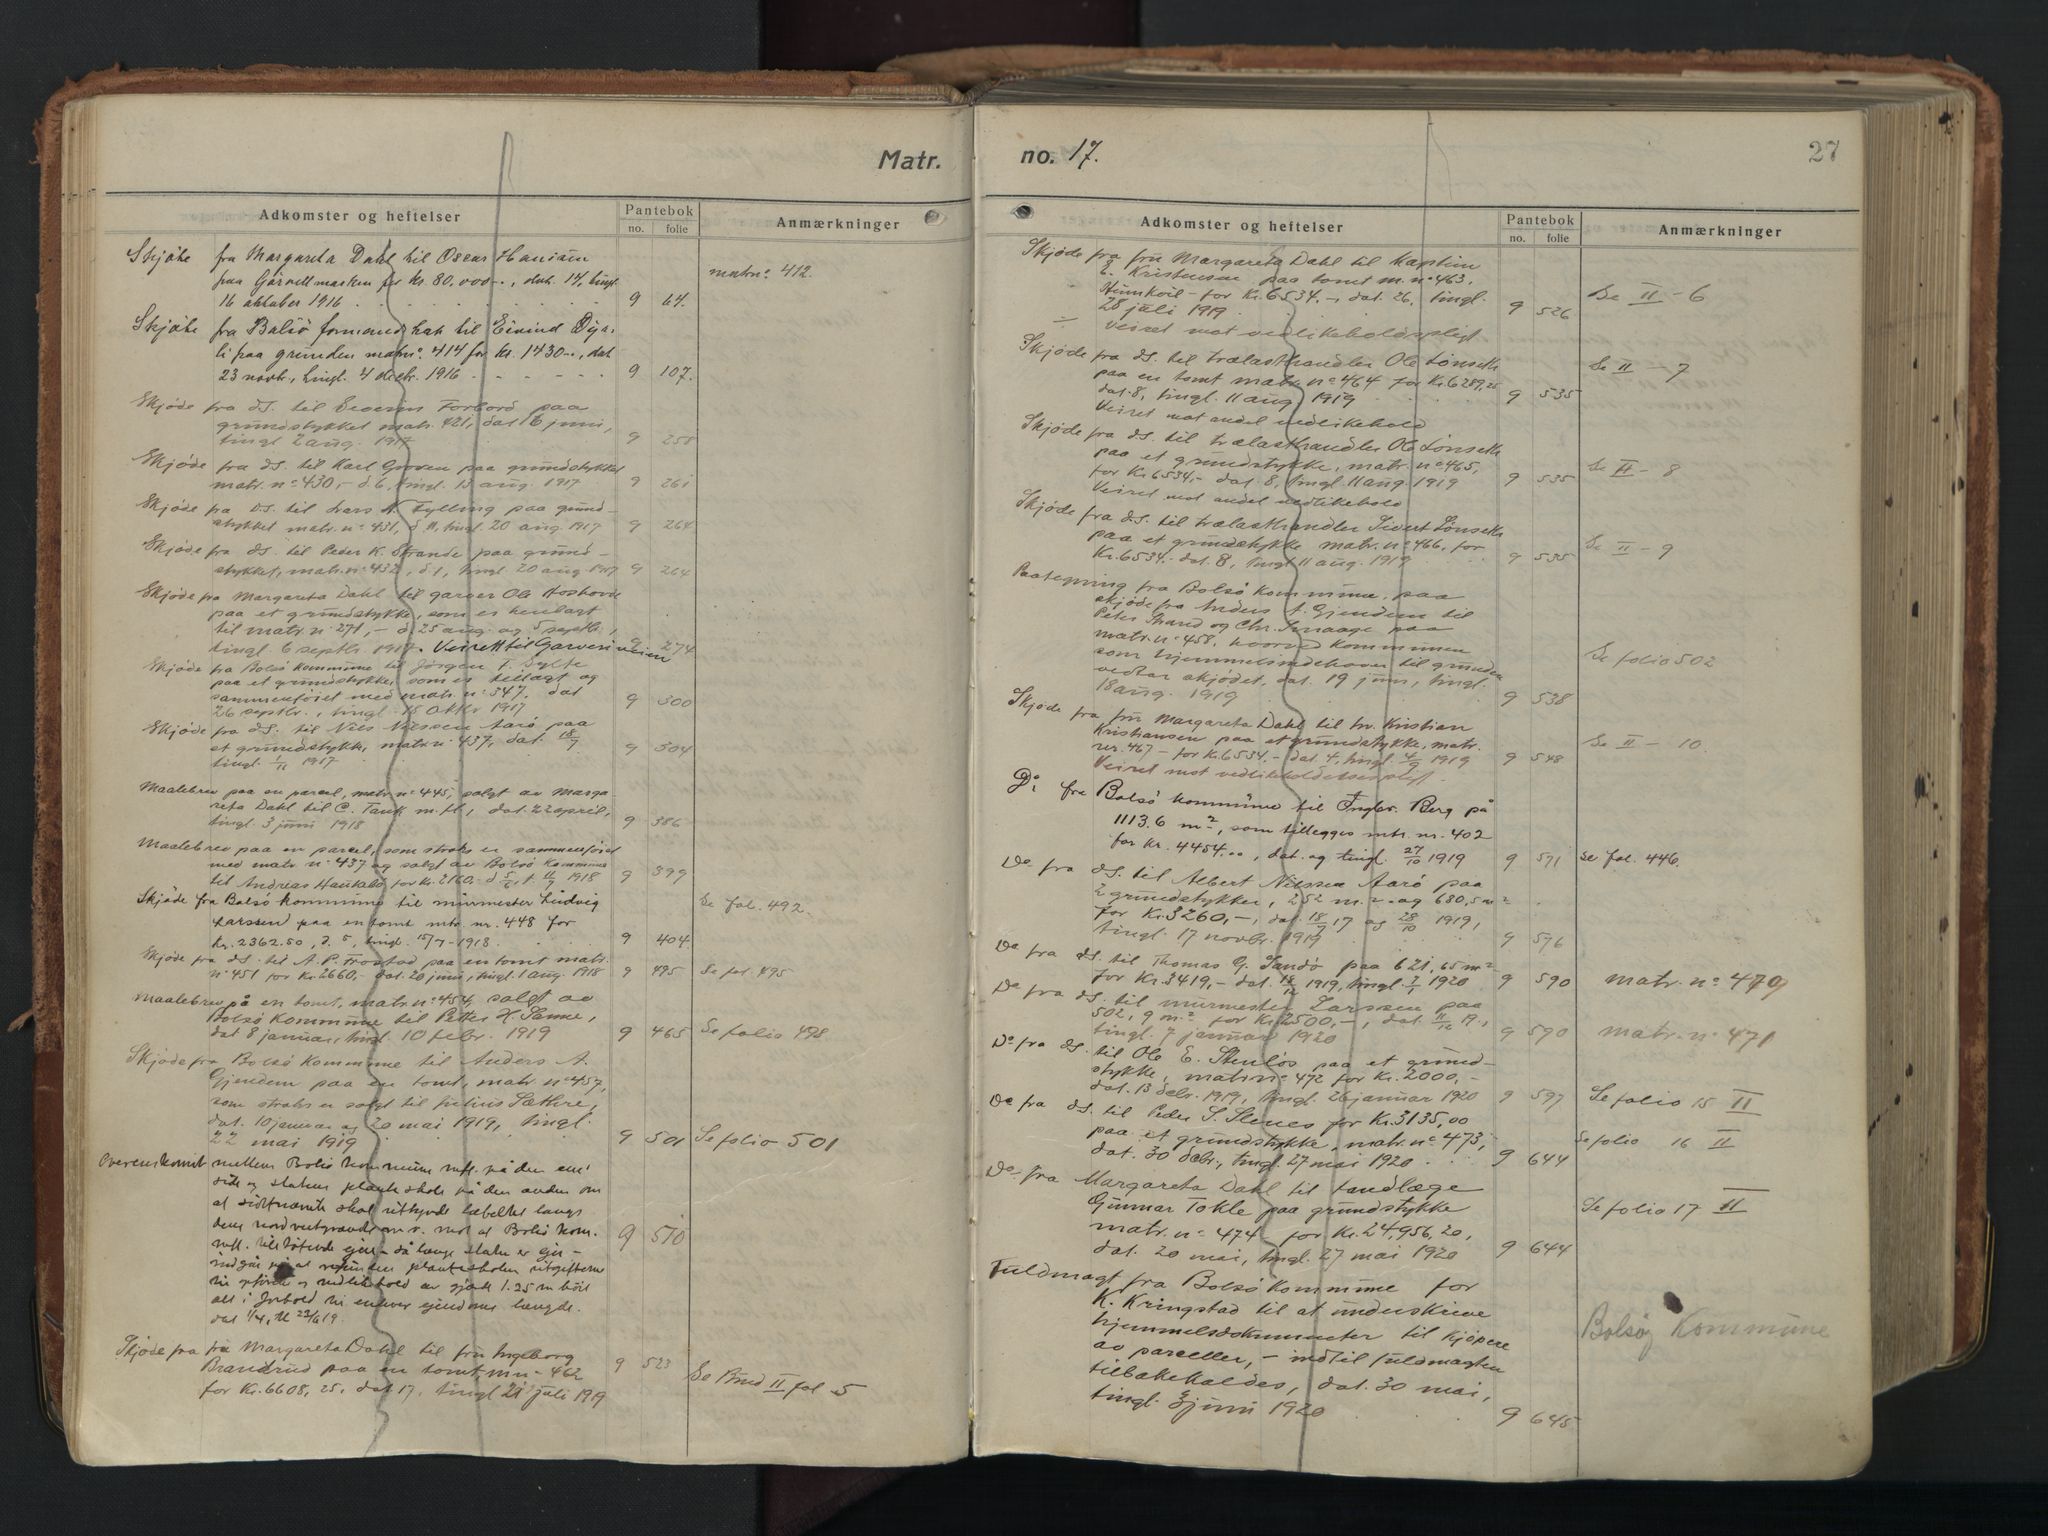 Matr.
Adkomster og heftelser
Pantebok
no. folie
Anmærkninger
Skjøte fra Margareta Dahl til Oscar Hansen
paa Garvellmarken for kr. 80,000 -, dat. 14, tingl.
16 oktober 1916 9 64.
matr. nº 412.
Skjøte fra Bolsö formandskap til Eivind Öya-
li paa grunden matr. nº 414 for kr. 1430 -, dat
23 novbr., tingl. 4 decbr. 1916 9 107.
Skjöde fra ds. til Severin Forbord paa
grundstykket matr. 421, dat 6 juni,
tingl 2 aug. 1917 9 258
Skjöde fra ds. til Karl Groven paa grundstykket
matr. nº 430, - d. 6, tingl. 13 aug. 1917 9 261
Skjöde fra ds. til Lars K. Fylling paa grund-
stykket matr. nº 431, d. 11, tingl 20 aug 1917 9 264
Skjöde fra ds. til Peder K. Strande paa grund-
stykket, matr. nº 432, d. 1, tingl 20 aug. 1917 9 264
Skjöde fra Margareta Dahl til garver Ole Aoshovde
paa et grundstykke, som er henlagt
til matr. nº 271, - d. 25 aug. og 5 septbr.,
tingl. 6 septbr. 1917. Veirett til Garveriveien 9 274
Skjöde fra Bolsö Kommune til Jörgen T. Sylte
paa et grundstykke, som er tillagt og
sammenföiet med matr. nº 347, dat
26 septbr., tingl. 15 oktbr 1917 9 300
Skjöde fra ds. til Nils Nilssen Aarö paa
et grundstykke, matr. nº 437, dat. 18/7
tingl. 1/11 1917 9 304
Maalebrev paa en parcel, matr. nº 445, solgt av Marga-
reta Dahl til C. Tank m. fl., dat. 22 april,
tingl. 3 juni 1918 9 386
Maalebrev paa en parcel, som straks er sammenföiet
med matr. nº 437 og solgt av Bolsö Kommune
til Andreas Haukebö for kr. 2160, - 1918 9 399
Skjöde fra Bolsö Kommune til murmester Ludvig
Larssen paa en tomt mtr. nr. 448 for
kr. 2362.50, d. 5, tingl. 15/7 - 1918 9 404.
Se fol. 492.
Skjöde fra ds. til A. P. Frostad paa en tomt matr.
nº 451 for kr. 2660, - dat. 20 juni, tingl. 1 aug. 1918 9 495
Se fol. 495
Maalebrev på en tomt, matr. nº 454, solgt av
Bolsö Kommune til Petter H. Sanne,
dat 8 januar, tingl. 10 febr. 1919 9 465
Se folio 498.
Skjöde fra Bolsö Kommune til Anders A.
Gjendem paa en tomt, matr. nº 457,
som straks er solgt til Julius Sæthre,
dat. 10 januar og 20 mai 1919, tingl.
22 mai 1919 9 501
Se folio 501
Overenskomst mellem Bolsö Kommune på den ene
side og statens planteskole på den anden om
at sidstnævnte skal
9 510
dat 1/4, tl 23/6 19.
Skjöde fra fru Margareta Dahl til fru Ingeborg
Brandrud paa en tomt mn - 462
for Kr. 6608,25, dat 17, tingl 21 juli 1919 9 523
Se Bind II fol 5
no. 17.
27
Adkomster og heftelser
Pantebok
no. folie
Anmærkninger
Skjöde fra fru Margareta Dahl til Kaptein
E. Kristensen paa tomt m. nº 463,
for Kr. 6534, -, dat. 26, tingl.
28 juli 1919 9 526
Se II - 6
Veiret mot vedlikeholdspligt.
Skjöde fra ds. til trælasthandler Ole Lönseth
paa en tomt matr. nº 464 for Kr. 6289,25
dat. 8, tingl. 11 aug 1919 9 535
Se II - 7
Veiret mot andel vedlikehold
Skjöde fra ds. til trælasthandler Ole Lönseth
paa et grundstykke, matr. nº 465,
for Kr. 6534, - dat. 8, tingl. 11 aug. 1919 9 535
Se II - 8
Veiret mot andel vedlikehold
Skjöde fra ds. til trælasthandler Sivert Lönseth
paa et grundstykke matr. nº 466, for
Kr. 6534, - dat. 8, tingl 11 aug. 1919 9 535
Se II - 9
Paategning fra Bolsö Kommune, paa
skjöde fra Anders A. Gjendem til
Peter Strand og Chr. Smaage paa
matr. nº 458, hvorved Kommunen
som hjemmelsindehaver til grunden
vedtar skjödet, dat. 19 juni, tingl.
18 aug. 1919 9 538
Se folio 502
Skjöde fra fru Margareta Dahl til hr. Kristian
Kristiansen paa et grundstykke, matr.
nr. 467 - for Kr. 6534, - dat. 4, tingl. 4/9 1919 9 548
Se II - 10.
Veiret mot vedlikeholdelsespligt.
Dº fra Bolsö Kommune til Ingbr. Berg på
1113.6 m², som tillegges mtr. nr. 402
for kr. 4454,00, dat. og tingl. 27/10 1919 9 571
Se fol. 446.
Dº fra ds. til Albert Nilssen Aarö paa
2 grundstykker, 252 m² og 680,5 m²
for Kr. 3260, -, dat. 18/9 17 og 28/10 1919,
tingl. 17 novbr. 1919 9 576
Dº fra ds. til Thomas G. Sandö paa 621,65 m²
for Kr. 3419, - dat. 18/12 1919, tingl. 7/1 1920 9 590
matr. nº 470
Dº fra ds. til murmester Larssen paa
502,9 m² for Kr. 2500, -, dat. 11/12 19,
tingl. 7 januar 1920 9 590
matr. nº 471
Dº fra ds. til Ole E. Stenlös paa et grund-
stykke, matr. nº 472 for Kr. 2000, -
dat. 13 decbr. 1919, tingl. 26 januar 1920 9 597
Se folio 15 II
Dº fra ds. til Peder S. Stenes for Kr. 3135,00
paa et grundstykke, matr. nº 473,
dat. 30 decbr., tingl. 27 mai 1920 9 644
Se folio 16 II
Dº fra Margareta Dahl til tandlæge
Gunnar Tokle paa grundstykke
matr. nº 474 for Kr. 24,956,20,
dat. 20 mai, tingl. 27 mai 1920 9 644
Se folio 17 II
Fuldmagt fra Bolsö Kommune for
K. Kringstad til at underskrive
hjemmelsdokumenter til kjöpere
av parceller, - indtil fuldmagten
tilbakekaldes, dat. 30 mai,
tingl. 3 juni 1920 9 645
Bolsøy Kommune